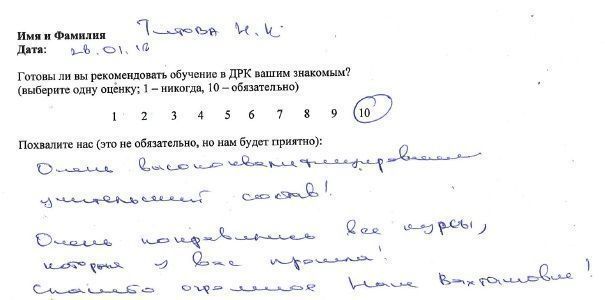 Имя и Фамилия Титова Н.К
Дата: 28.01.16
Готовы ли вы рекомендовать обучение в ДРК вашим знакомым?
(выберите одну оценку; 1 – никогда, 10 – обязательно)
1 2 3 4 5 6 7 8 9 10
Похвалите нас (это не обязательно, но нам будет приятно):
Очень высококвалифицированный
учительский состав!
Очень понравились все курсы,
которые у вас прошла!
Спасибо огромное Нане Вахтанговне!